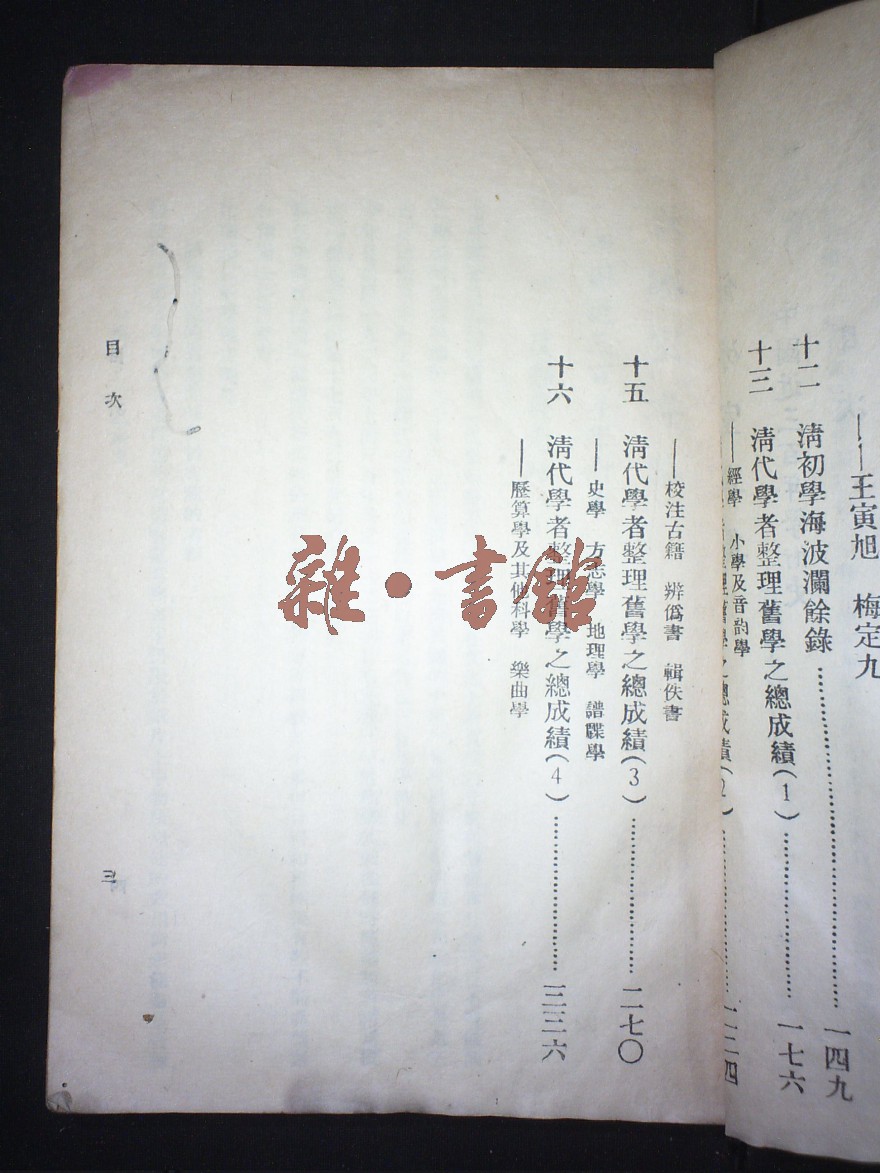 ——王寅旭　梅定九
十二　清初學海波瀾餘錄……………………一四九
十三　清代學者整理舊學之總成績(1)……………………一七六
——經學　小學及音韵學
整理舊學之總成績(2)……………………二二四
——校注古籍　辨僞書　輯佚書
十五　清代學者整理舊學之總成績(3)……………………二七〇
——史學　方志學　地理學　譜牒學
十六　清代學者整理舊學之總成績(4)……………………三三六
——歷算學及其他科學　樂曲學
目次
三
雜·書館